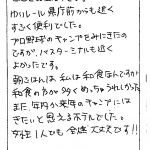 ゆいレール県庁前からも近く
すごく便利でした。
プロ野球のキャンプをみにきたの
ですが、バスターミナルも近く
よかったです。
朝ごはんは、私は和食なんですが
和食のおかず多くめっちゃうれしかった
また、年内か来年のキャンプには
きたいと思えるホテルでした。
女性1人でも全然大丈夫です!!